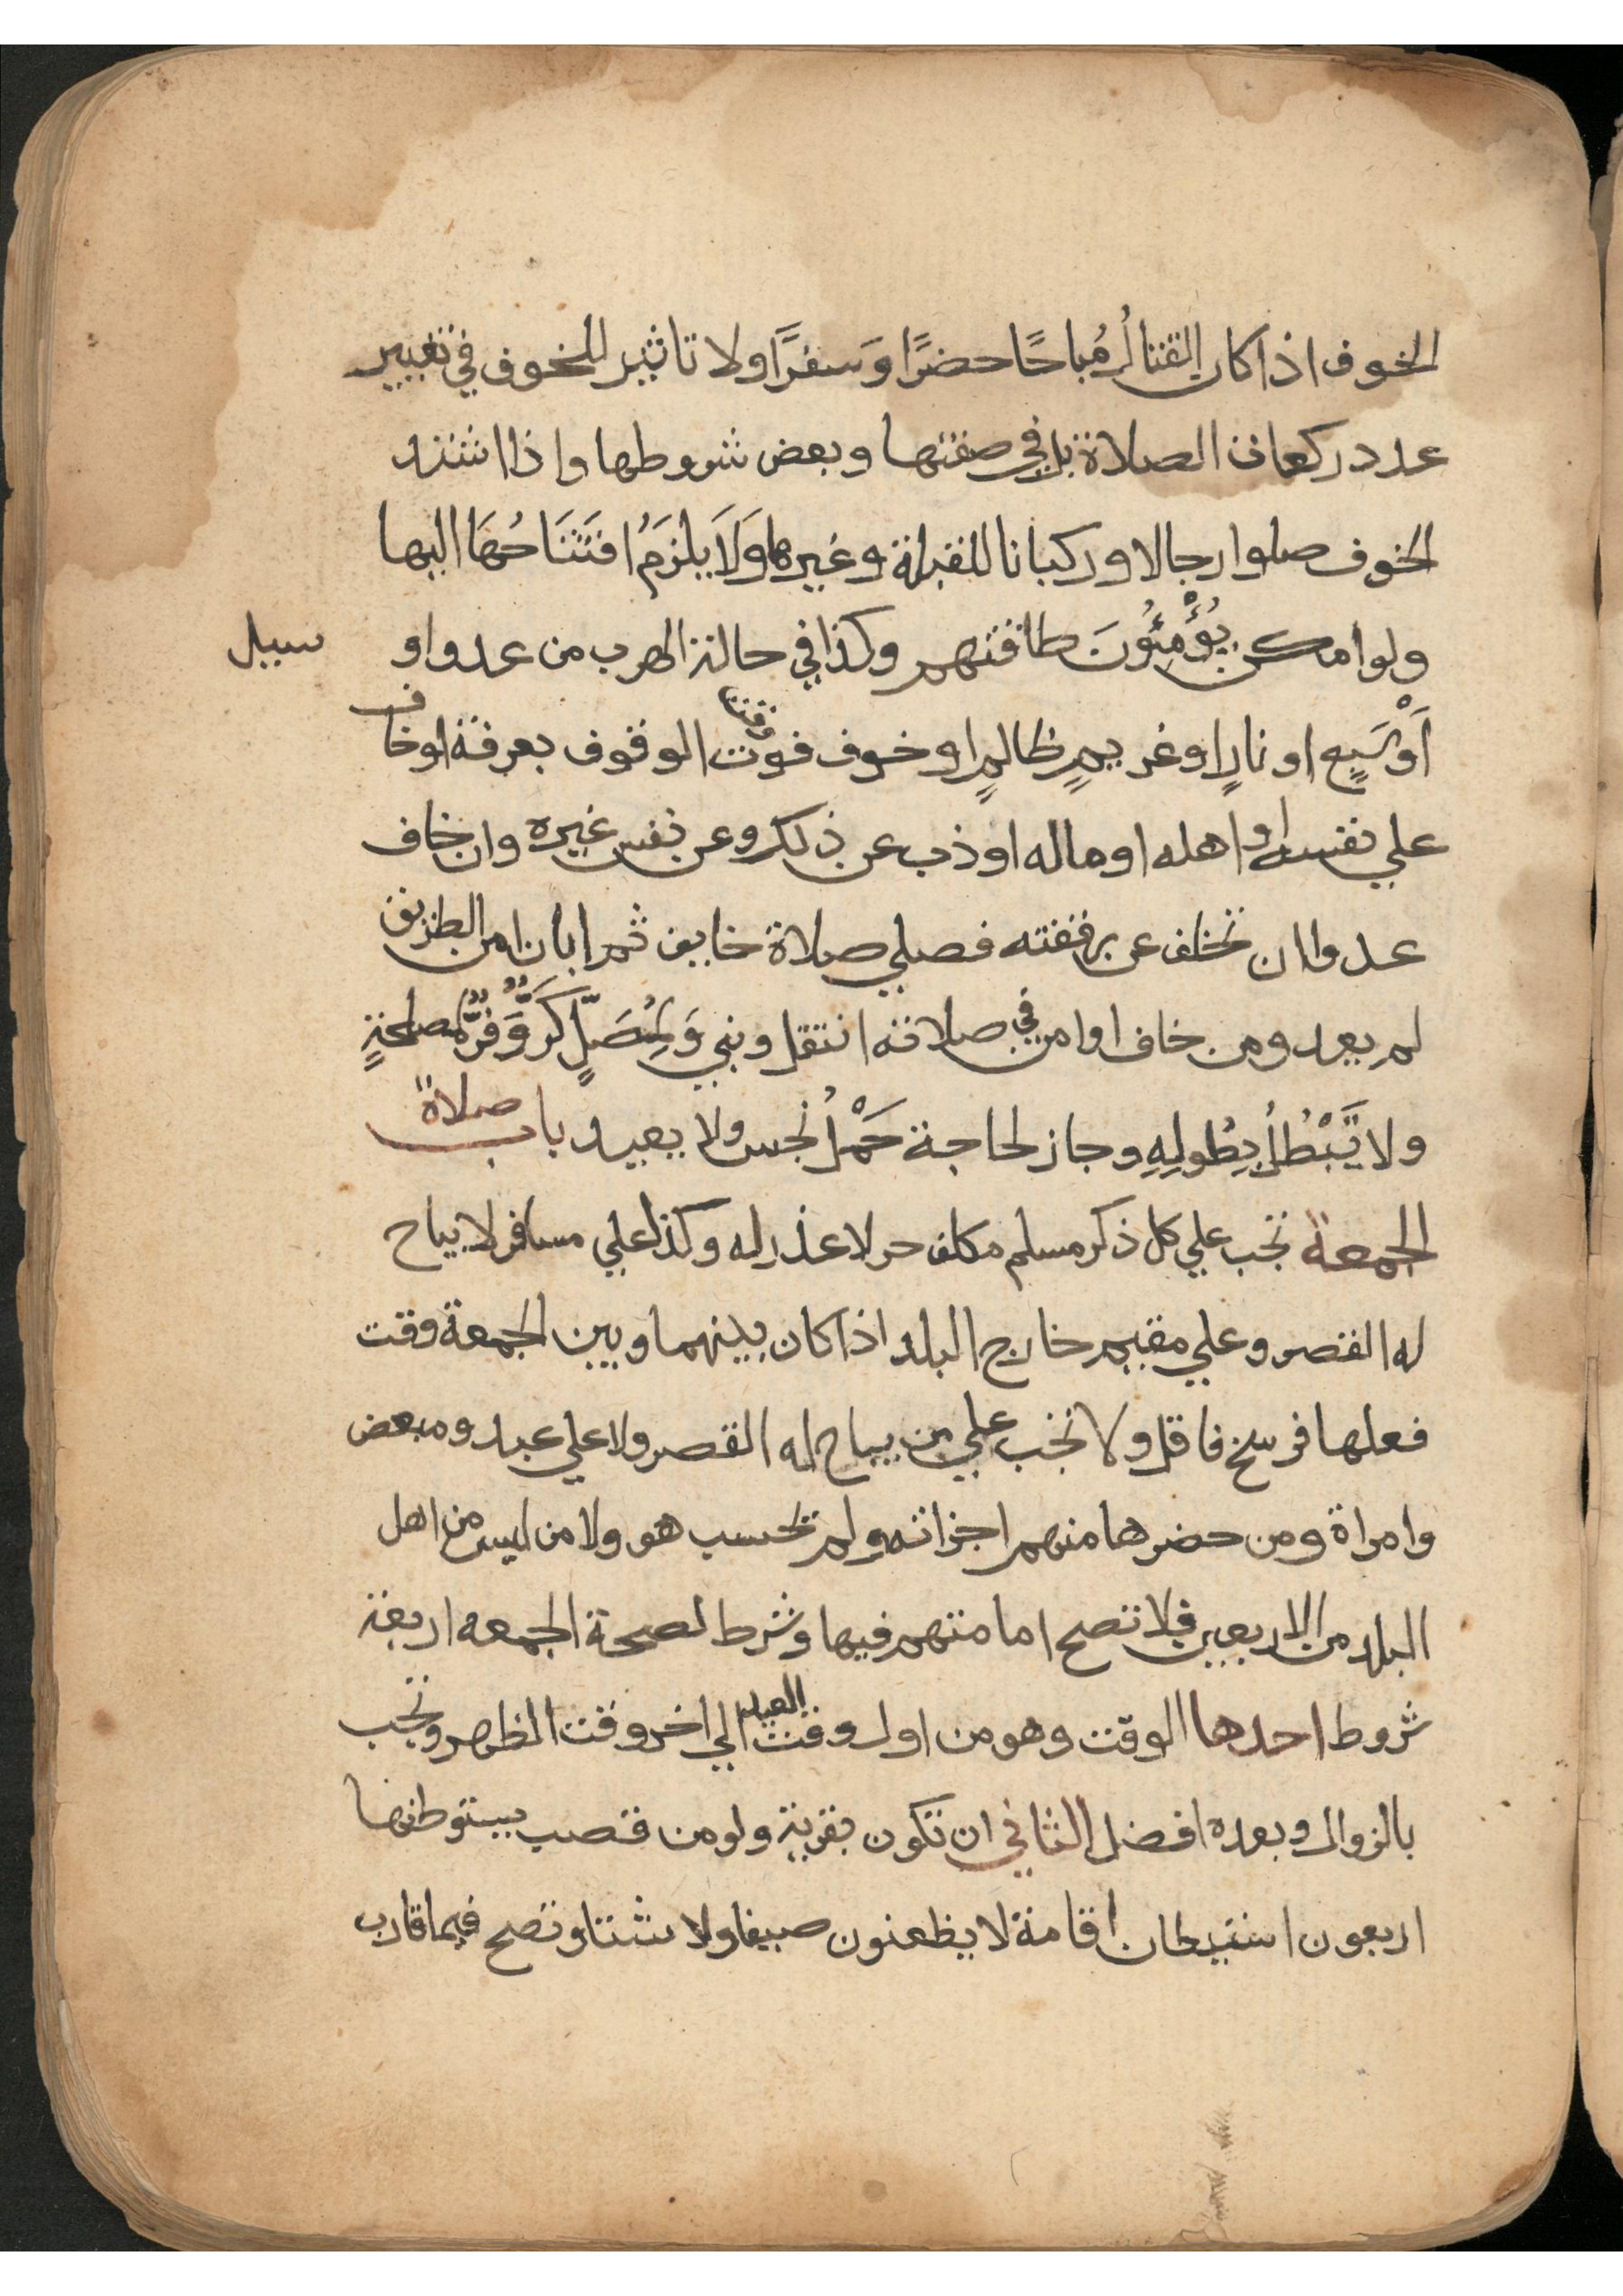 الخوف اذا كان القتالُ مُباحًا حضرًا وَسفرًا ولا تاثير للخوف في تغيير
عدد ركعات الصلاة بل في صفتها وبعض شروطها واذا اشتد
الخوف صلوا رجالا وركبانا للقبلة وغيرها وَلَا يلزمُ افتَتَاحُهَا اليها
ولو امكن يُؤْمِئُونَ طاقتهم وكذا في حالة الهرب من عدو او سيل
اَوْ سَبٍع او نارٍ اوغريمٍ ظالمٍ او خوف فوت وقت الوقوف بعرفة او خاف
علي نفسه او اهله او ماله او ذب عن ذلك وعن نفس غيره وان خاف
عدوا ان تخلف عن رفقته فصلي صلاة خايف ثم ابان امن الطريق
لم يعد ومن خاف او امن في صلاته انتقل وبني وَلِمُصَلٍّ كَرٌّ وَّفَرٌّ لمصلحةٍ
ولا تَبْطُلُ بِطُولِهِ وجاز لحاجة حَمْلُ نجس ولا يعيد باب صلاة
الجمعة تجب علي كل ذكر مسلم مكلف حر لا عذر له وكذا علي مسافر لا يباح
له القصر وعلي مقيم خارج البلد اذا كان بينهما وبين الجمعة وقت
فعلها فرسخ فاقل ولا تجب علي من يباح له القصر ولا علي عبد ومبعض
وامراة ومن حضرها منهم اجزاته ولم تحسب هو ولا من ليس من اهل
البلد من الاربعين فلا تصح امامتهم فيها وشرط لصحة الجمعه اربعة
شروط احدها الوقت وهو من اول وقت العيد الي اخر وقت الظهر وتجب
بالزوال وبعده افضل الثاني ان تكون بقرية ولو من قصب يستوطنها
اربعون استيطان اقامة لا يظعنون صيفا ولا شتا وتصح فيما قارب